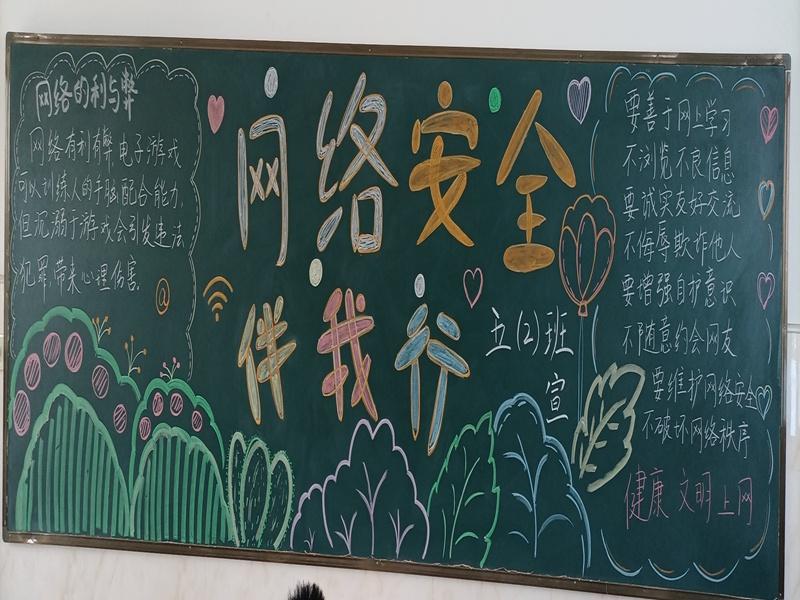 网络的利与弊
网络有利有弊电子游戏
可以训练人的手脑配合能力,
但沉溺于游戏会引发违法
犯罪,带来心理伤害.
@
网络安全
伴我行
五(2)班
宣
要善于网上学习
不浏览不良信息
要诚实友好交流
不侮辱欺诈他人
要增强自护意识
不随意约会网友
要维护网络安全
不破坏网络秩序
健康 文明上网